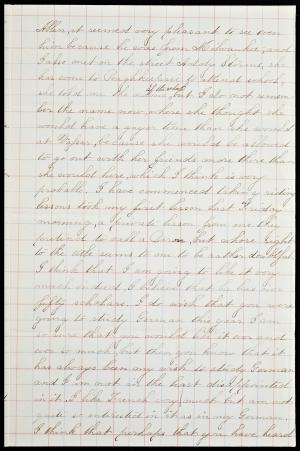 Allen, it seemed very pleasant to see even
him because he was from Milwaukee, and
I also met on the street Addy Storms, she
has come to Poughkeepsie to attend school,
she told me the name of the school, but I do not remem-
ber the name now, where she thought she
would have a gayer time than she would
at Vassar, because she would be allowed
to go out with her friends more there than
she would here, which I think is very
probable. I have commenced taking riding
lessons took my first lesson last Friday
morning, a private lesson from me they
to call a Baron, but whose right
to the title seems to me to be rather doubtful.
I think that I am going to like it very
much indeed. I believe that he has over
fifty scholars. I do wish that you were
going to study German this year I am
so sure that you would like it ever and
ever so much, but then you know that it
has always been my wish to study German
and I am not in the least disappointed
in it. I like French very much but am not
quite so interested in it as in my German.
I think that perhaps that you have heard